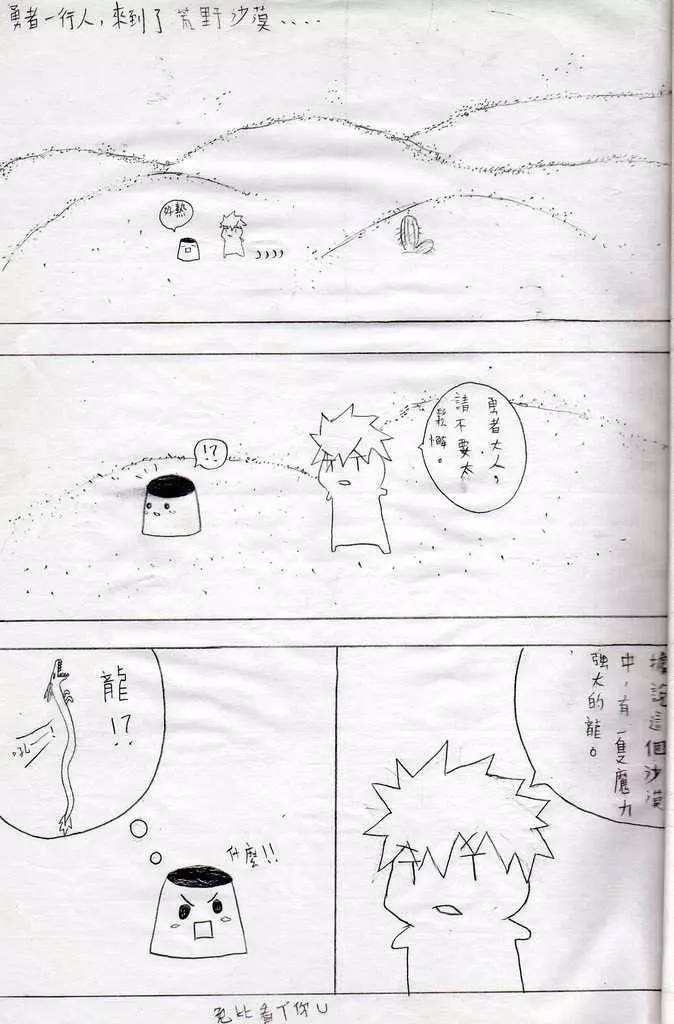 勇者一行人，來到了荒野沙漠....
好熱
勇者大人，
請不要太
鬆懈。
!?
據說這個沙漠
中，有一隻魔力
強大的龍。
龍!?
吼!
什麼!!